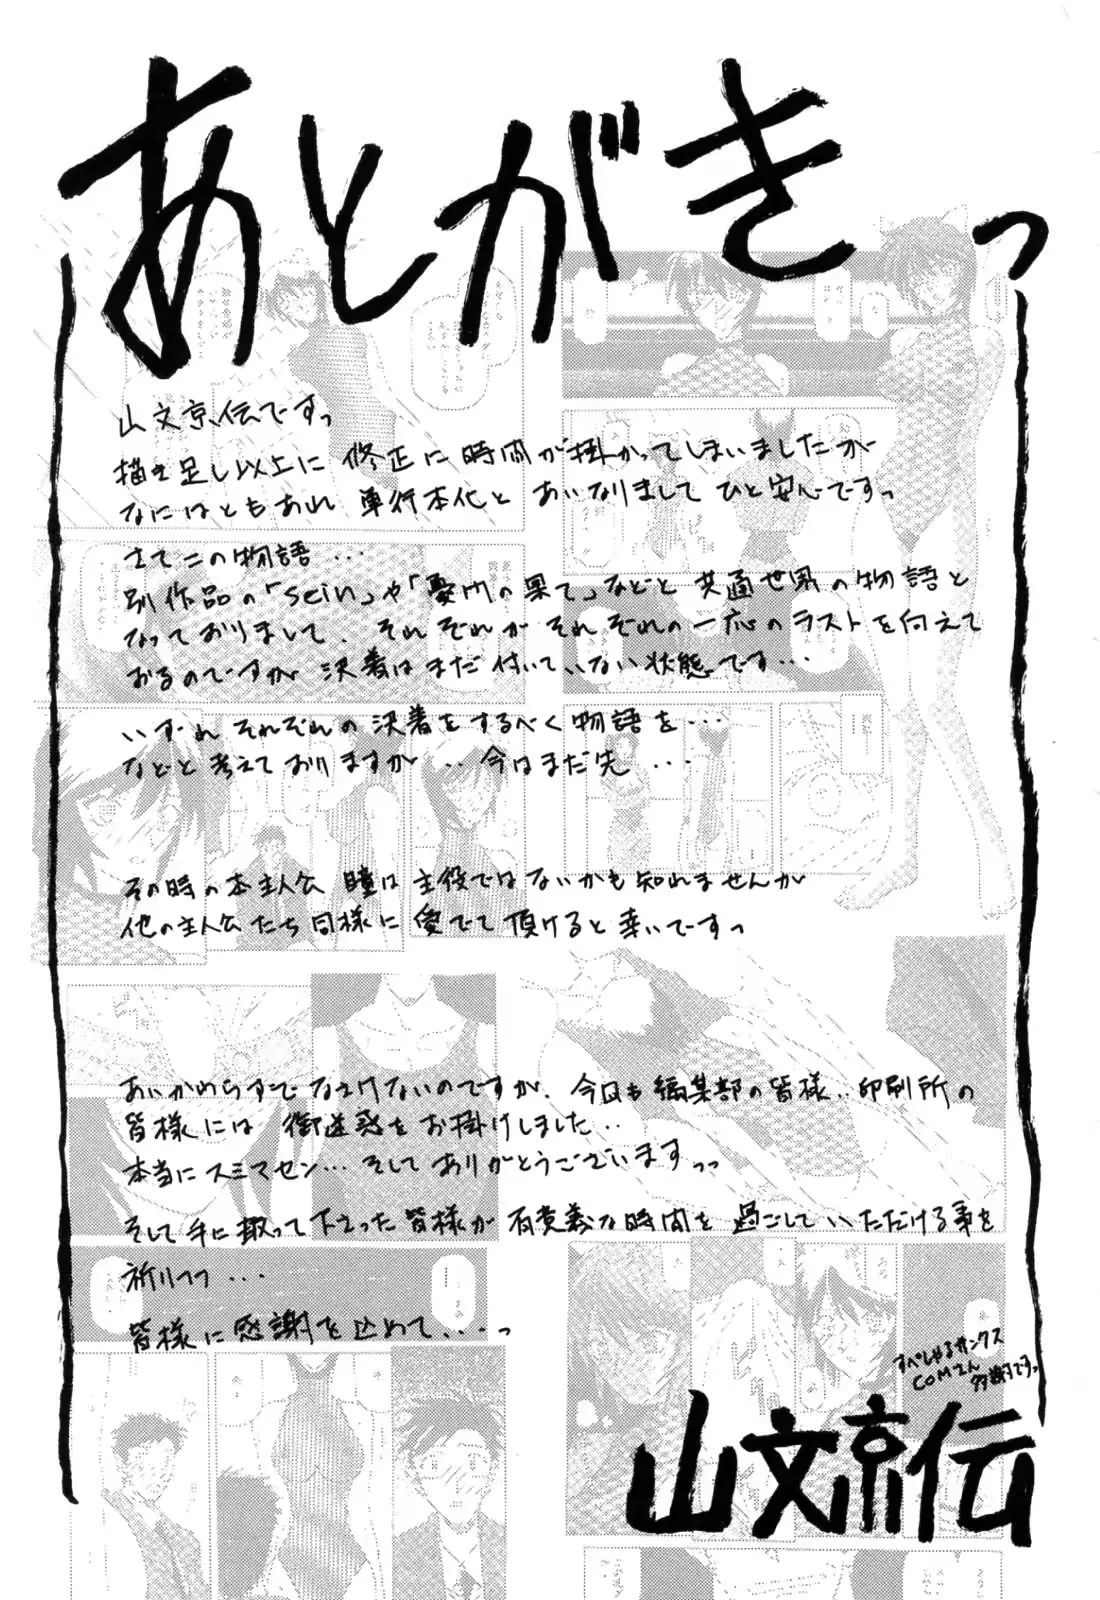 あとがきっ
山文京伝ですっ
描き足し以上に修正に時間が掛かってしまいましたが
なにはともあれ単行本化とあいなりましてひと安心ですっ
さてこの物語・・・
別作品の「sein」や「憂鬥の果て」などと共通世界の物語と
なっておりまして、それぞれがそれぞれの一応のラストを向えて
おるのですが決着はまだ付いていない状態です・・・
いずれそれぞれの決着をするべく物語を・・・
などと考えておりますが・・今はまだ先・・・
その時の本主人公瞳は主役ではないかも知れませんが
他の主人公たち同様に愛でて頂けると幸いですっ
あいかわらずでなさけないのですが、今回も編集部の皆様、印刷所の
皆様には御迷惑をお掛けしました・・
本当にスミマセン・・・そしてありがとうございますっっ
そして手に取って下さった皆様が有意義な時間を過ごしていただける事を
祈りつつ・・・
皆様に感謝を込めて・・・っ
すぺしゃるサンクス
COMさん
多謝ですっ
山文京伝